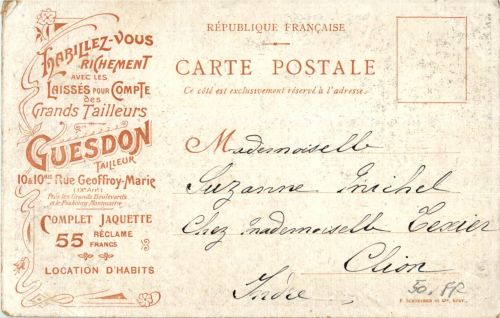 HABILLEZ-VOUS
RICHEMENT
AVEC LES
LAISSÉS POUR COMPTE
des
Grands Tailleurs
GUESDON
TAILLEUR
10 & 10bis Rue Geoffroy-Marie
(IXe Arrt)
Près les Grands Boulevards
et le Faubourg Montmartre
COMPLET JAQUETTE
55 RÉCLAME
FRANCS
LOCATION D'HABITS
RÉPUBLIQUE FRANÇAISE
CARTE POSTALE
Ce côté est exclusivement réservé à l'adresse.
Mademoiselle
Suzanne Michel
Chez Mademoiselle Texier
Clion
Indre